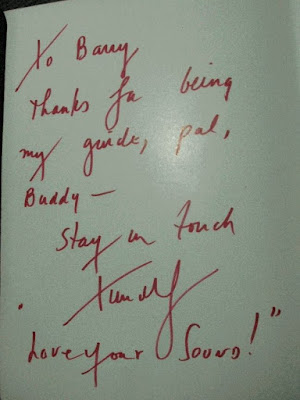 To Barry
thanks for being
my guide, pal,
Buddy —
Stay in touch
Love your Sound!"